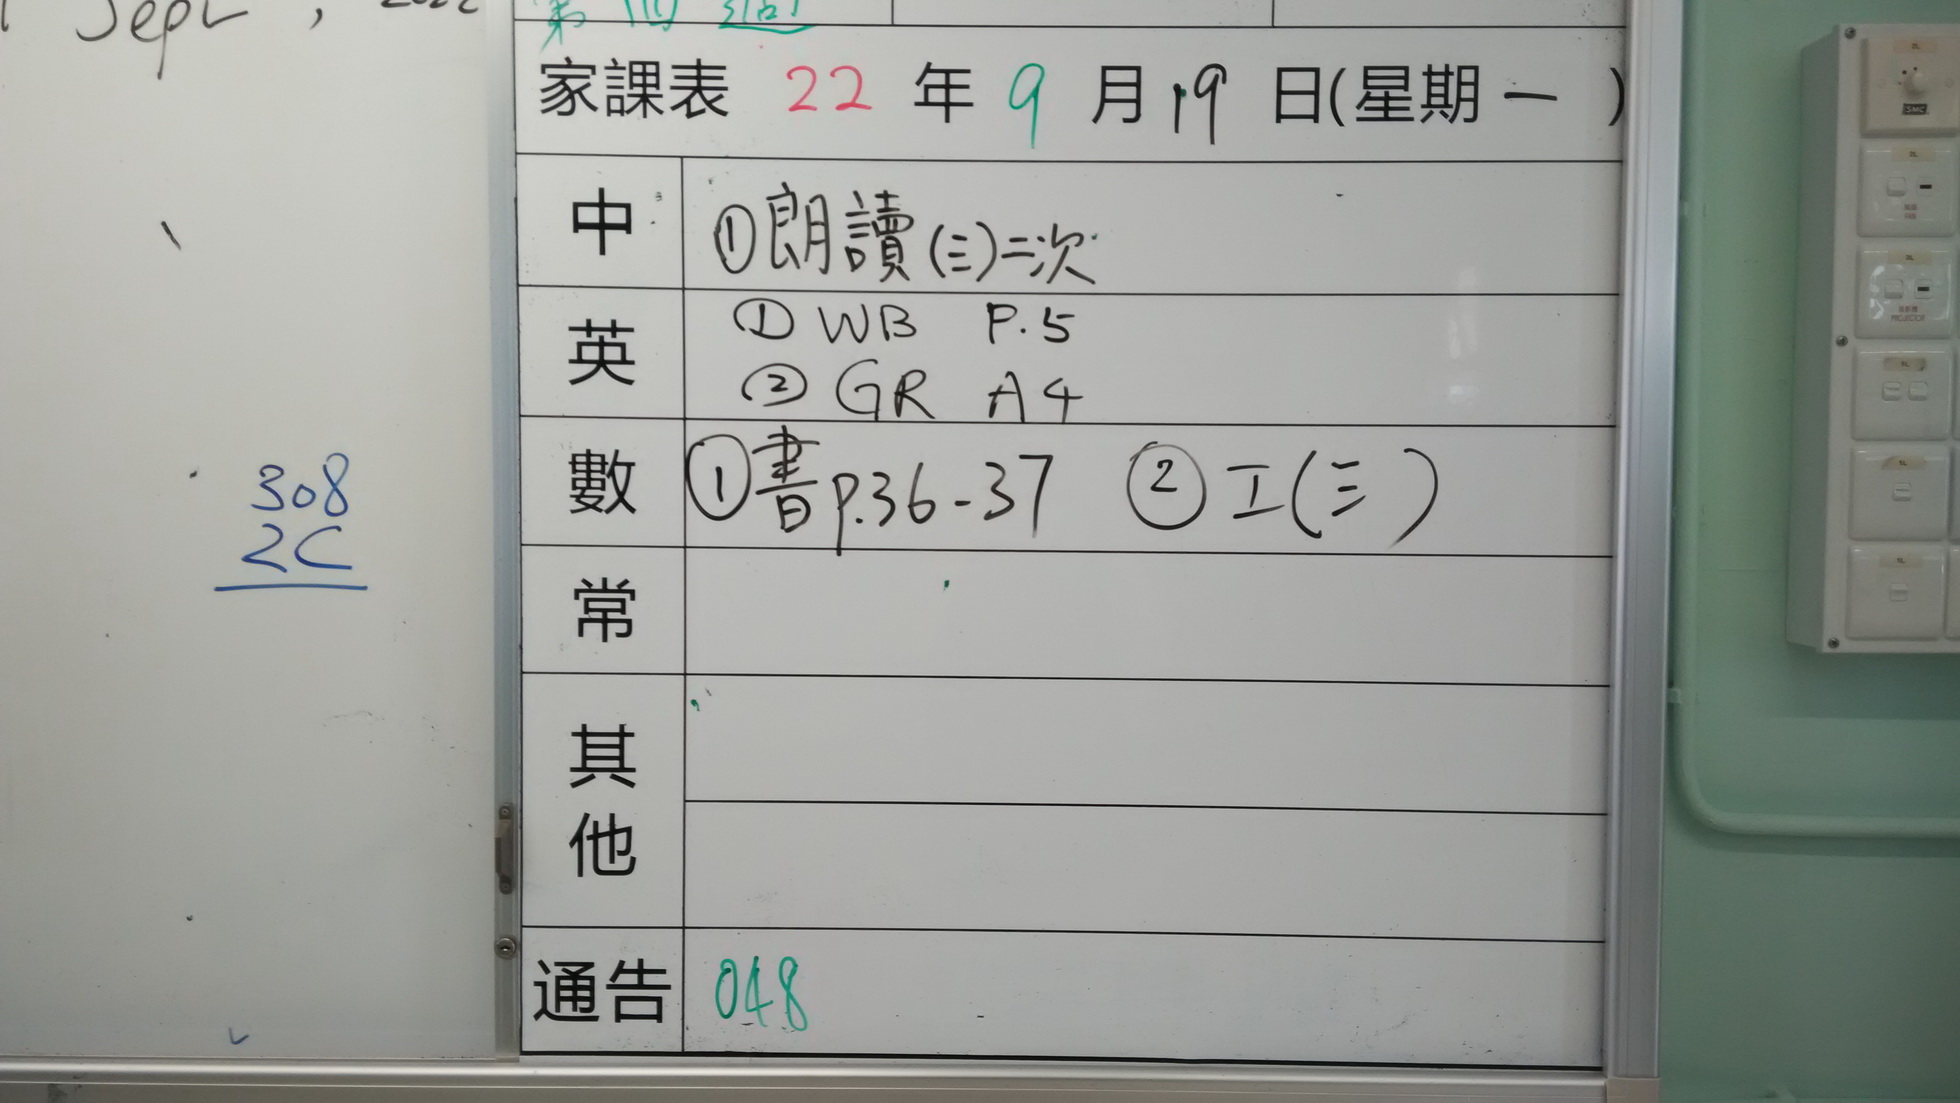 Sept, 2022
308
2C
第 四 週
家課表 22 年 9 月 19 日(星期 一 )
中 ①朗讀(三)二次
英 ① WB P.5
② GR A4
數 ①書p.36-37 ②工(三)
常
其他
通告 048
SMC
PROJECTOR